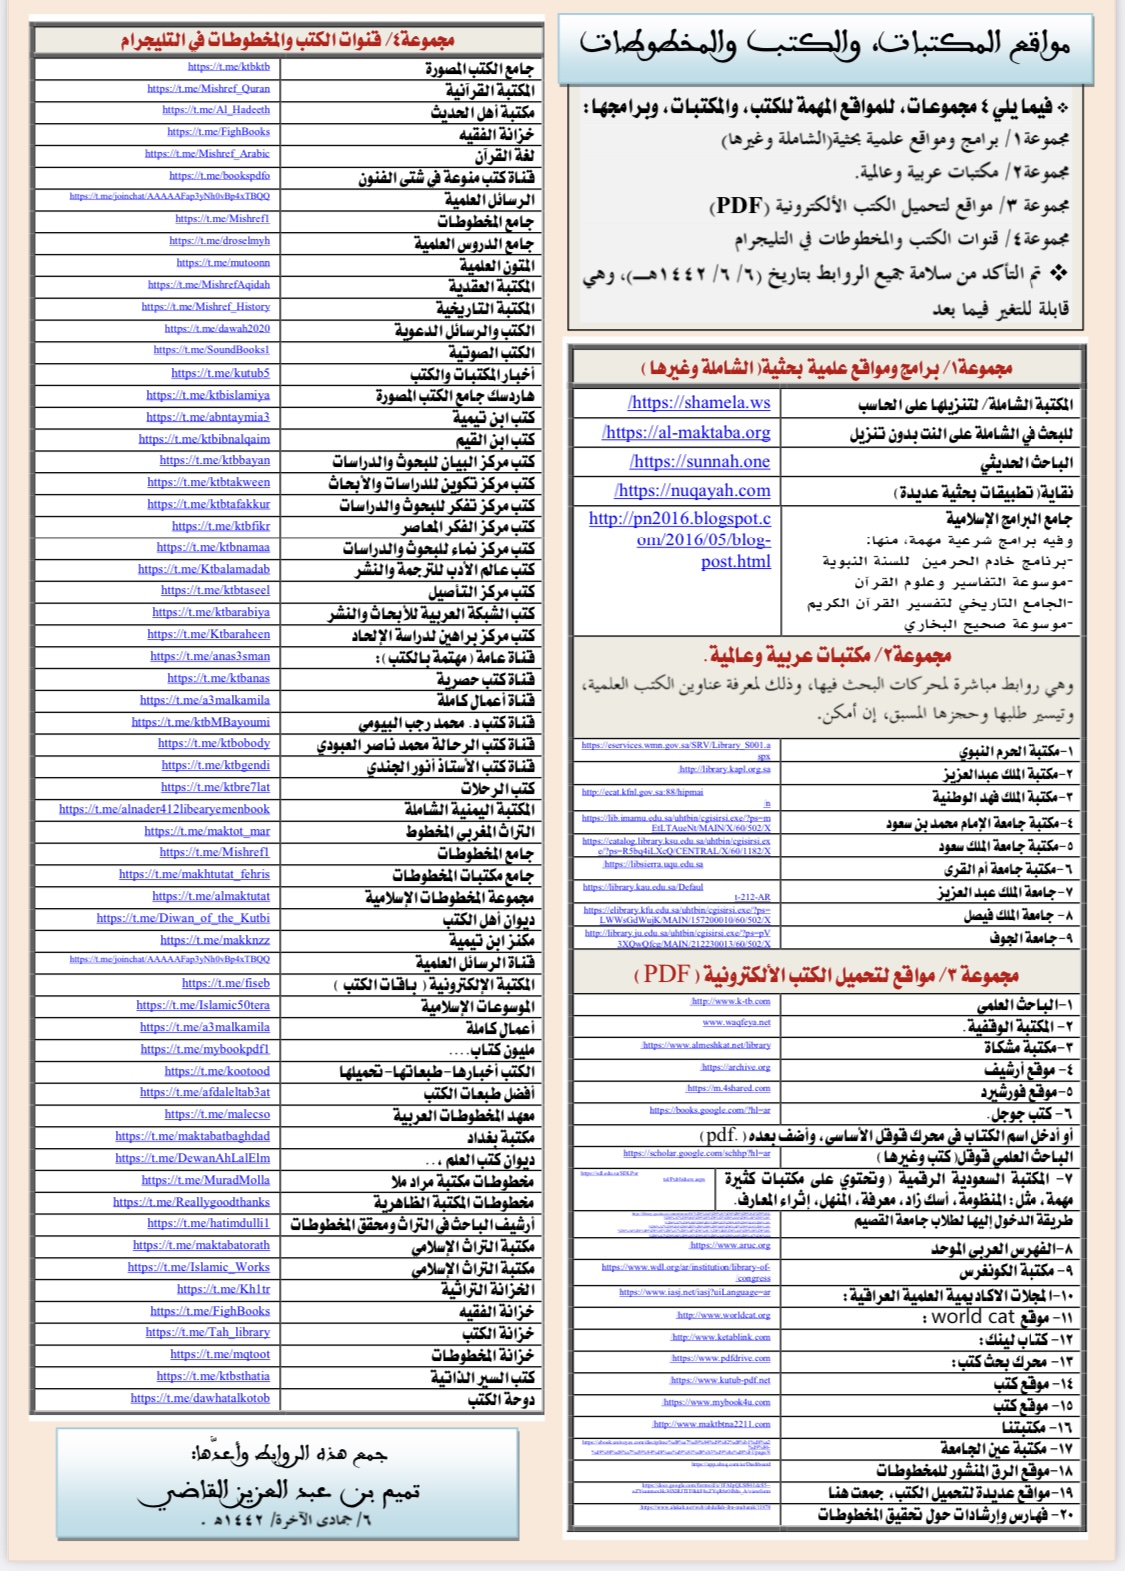 مواقع المكتبات، والكتب والمخطوطات
❖ فيما يلي ٤ مجموعات، للمواقع المهمة للكتب، والمكتبات، وبرامجها:
مجموعة١/ برامج ومواقع علمية بحثية(الشاملة وغيرها)
مجموعة٢/ مكتبات عربية وعالمية.
مجموعة ٣/ مواقع لتحميل الكتب الألكترونية (PDF)
مجموعة٤/ قنوات الكتب والمخطوطات في التليجرام
❖ تم التأكد من سلامة جميع الروابط بتاريخ (٦/ ٦/ ١٤٤٢هـ)، وهي
قابلة للتغير فيما بعد
مجموعة١/ برامج ومواقع علمية بحثية( الشاملة وغيرها )
المكتبة الشاملة/ لتنزيلها على الحاسب https://shamela.ws/
للبحث في الشاملة على النت بدون تنزيل https://al-maktaba.org/
الباحث الحديثي https://sunnah.one/
نقاية( تطبيقات بحثية عديدة) https://nuqayah.com/
جامع البرامج الإسلامية http://pn2016.blogspot.c
وفيه برامج شرعية مهمة، منها: om/2016/05/blog-
-برنامج خادم الحرمين للسنة النبوية post.html
-موسوعة التفاسير وعلوم القرآن
-الجامع التاريخي لتفسير القرآن الكريم
-موسوعة صحيح البخاري
مجموعة٢/ مكتبات عربية وعالمية.
وهي روابط مباشرة لمحركات البحث فيها، وذلك لمعرفة عناوين الكتب العلمية،
وتيسير طلبها وحجزها المسبق، إن أمكن.
١-مكتبة الحرم النبوي https://eservices.wmn.gov.sa/SRV/Library_S001.a
spx
٢-مكتبة الملك عبدالعزيز http://library.kapl.org.sa/
٣-مكتبة الملك فهد الوطنية http://ecat.kfnl.gov.sa:88/hipmai
n/
٤-مكتبة جامعة الإمام محمد بن سعود https://lib.imamu.edu.sa/uhtbin/cgisirsi.exe/?ps=m
EtLTAueNt/MAIN/X/60/502/X
٥-مكتبة جامعة الملك سعود https://catalog.library.ksu.edu.sa/uhtbin/cgisirsi.ex
e/?ps=R5bq4iLXcQ/CENTRAL/X/60/1182/X
٦-مكتبة جامعة أم القرى https://libsierra.uqu.edu.sa/
٧-جامعة الملك عبد العزيز https://library.kau.edu.sa/Defaul
t-212-AR
٨- جامعة الملك فيصل https://elibrary.kfu.edu.sa/uhtbin/cgisirsi.exe/?ps=
LWWsGdWujK/MAIN/157200010/60/502/X
٩-جامعة الجوف http://library.ju.edu.sa/uhtbin/cgisirsi.exe/?ps=pV
3XQwQfcg/MAIN/212230013/60/502/X
مجموعة ٣/ مواقع لتحميل الكتب الألكترونية ( PDF)
١-الباحث العلمي http://www.k-tb.com/
٢- المكتبة الوقفية. www.waqfeya.net
٣-مكتبة مشكاة https://www.almeshkat.net/library/
٤- موقع أرشيف https://archive.org/
٥-موقع فورشيرد https://m.4shared.com/
٦- كتب جوجل. https://books.google.com/?hl=ar
أو أدخل اسم الكتاب في محرك قوقل الأساسي، وأضف بعده( .pdf)
الباحث العلمي قوقل( كتب وغيرها ) https://scholar.google.com/schhp?hl=ar
٧- المكتبة السعودية الرقمية ( وتحتوي على مكتبات كثيرة
مهمة، مثل: المنظومة، أسك زاد، معرفة، المنهل، إثراء المعارف.
طريقة الدخول إليها لطلاب جامعة القصيم
٨-الفهرس العربي الموحد https://www.aruc.org/
٩- مكتبة الكونغرس https://www.wdl.org/ar/institution/library-of-
congress/
١٠-المجلات الاكاديمية العلمية العراقية: https://www.iasj.net/iasj?uiLanguage=ar
١١- موقع world cat : http://www.worldcat.org/
١٢- كتاب لينك: http://www.ketablink.com/
١٣- محرك بحث كتب: https://www.pdfdrive.com/
١٤- موقع كتب https://www.kutub-pdf.net/
١٥- موقع كتب https://www.mybook4u.com/
١٦- مكتبتنا http://www.maktbtna2211.com/
١٧- مكتبة عين الجامعة
١٨-موقع الرق المنشور للمخطوطات
١٩-مواقع عديدة لتحميل الكتب، جمعت هنا
٢٠- فهارس وإرشادات حول تحقيق المخطوطات
مجموعة٤/ قنوات الكتب والمخطوطات في التليجرام
جامع الكتب المصورة https://t.me/ktbktb
المكتبة القرآنية https://t.me/Mishref_Quran
مكتبة أهل الحديث https://t.me/Al_Hadeeth
خزانة الفقيه https://t.me/FighBooks
لغة القرآن https://t.me/Mishref_Arabic
قناة كتب منوعة في شتى الفنون https://t.me/bookspdfo
الرسائل العلمية https://t.me/joinchat/AAAAAFap3yNh0vBp4xTBQQ
جامع المخطوطات https://t.me/Mishref1
جامع الدروس العلمية https://t.me/droselmyh
المتون العلمية https://t.me/mutoonn
المكتبة العقدية https://t.me/MishrefAqidah
المكتبة التاريخية https://t.me/Mishref_History
الكتب والرسائل الدعوية https://t.me/dawah2020
الكتب الصوتية https://t.me/SoundBooks1
أخبار المكتبات والكتب https://t.me/kutub5
هاردسك جامع الكتب المصورة https://t.me/ktbislamiya
كتب ابن تيمية https://t.me/abntaymia3
كتب ابن القيم https://t.me/ktbibnalqaim
كتب مركز البيان للبحوث والدراسات https://t.me/ktbbayan
كتب مركز تكوين للدراسات والأبحاث https://t.me/ktbtakween
كتب مركز تفكر للبحوث والدراسات https://t.me/ktbtafakkur
كتب مركز الفكر المعاصر https://t.me/ktbfikr
كتب مركز نماء للبحوث والدراسات https://t.me/ktbnamaa
كتب عالم الأدب للترجمة والنشر https://t.me/Ktbalamadab
كتب مركز التأصيل https://t.me/ktbtaseel
كتب الشبكة العربية للأبحاث والنشر https://t.me/ktbarabiya
كتب مركز براهين لدراسة الإلحاد https://t.me/Ktbaraheen
قناة عامة ( مهتمة بالكتب ): https://t.me/anas3sman
قناة كتب حصرية https://t.me/ktbanas
قناة أعمال كاملة https://t.me/a3malkamila
قناة كتب د. محمد رجب البيومي https://t.me/ktbMBayoumi
قناة كتب الرحالة محمد ناصر العبودي https://t.me/ktbobody
قناة كتب الأستاذ أنور الجندي https://t.me/ktbgendi
كتب الرحلات https://t.me/ktbre7lat
المكتبة اليمنية الشاملة https://t.me/alnader412libearyemenbook
التراث المغربي المخطوط https://t.me/maktot_mar
جامع المخطوطات https://t.me/Mishref1
جامع مكتبات المخطوطات https://t.me/makhtutat_fehris
مجموعة المخطوطات الإسلامية https://t.me/almaktutat
ديوان أهل الكتب https://t.me/Diwan_of_the_Kutbi
مكنز ابن تيمية https://t.me/makknzz
قناة الرسائل العلمية https://t.me/joinchat/AAAAAFap3yNh0vBp4xTBQQ
المكتبة الإلكترونية ( باقات الكتب ) https://t.me/fiseb
الموسوعات الإسلامية https://t.me/Islamic50tera
أعمال كاملة https://t.me/a3malkamila
مليون كتاب.... https://t.me/mybookpdf1
الكتب أخبارها-طبعاتها-تحميلها https://t.me/kootood
أفضل طبعات الكتب https://t.me/afdaleltab3at
معهد المخطوطات العربية https://t.me/malecso
مكتبة بغداد https://t.me/maktabatbaghdad
ديوان كتب العلم ،.. https://t.me/DewanAhLalElm
مخطوطات مكتبة مراد ملا https://t.me/MuradMolla
مخطوطات المكتبة الظاهرية https://t.me/Reallygoodthanks
أرشيف الباحث في التراث ومحقق المخطوطات https://t.me/hatimdulli1
مكتبة التراث الإسلامي https://t.me/maktabatorath
مكتبة التراث الإسلامي https://t.me/Islamic_Works
الخزانة التراثية https://t.me/Kh1tr
خزانة الفقيه https://t.me/FighBooks
خزانة الكتب https://t.me/Tah_library
خزانة المخطوطات https://t.me/mqtoot
كتب السير الذاتية https://t.me/ktbsthatia
دوحة الكتب https://t.me/dawhatalkotob
جمع هذه الروابط وأعدَّها:
تميم بن عبد العزيز القاضي
٦/ جمادى الآخرة/ ١٤٤٢هـ .